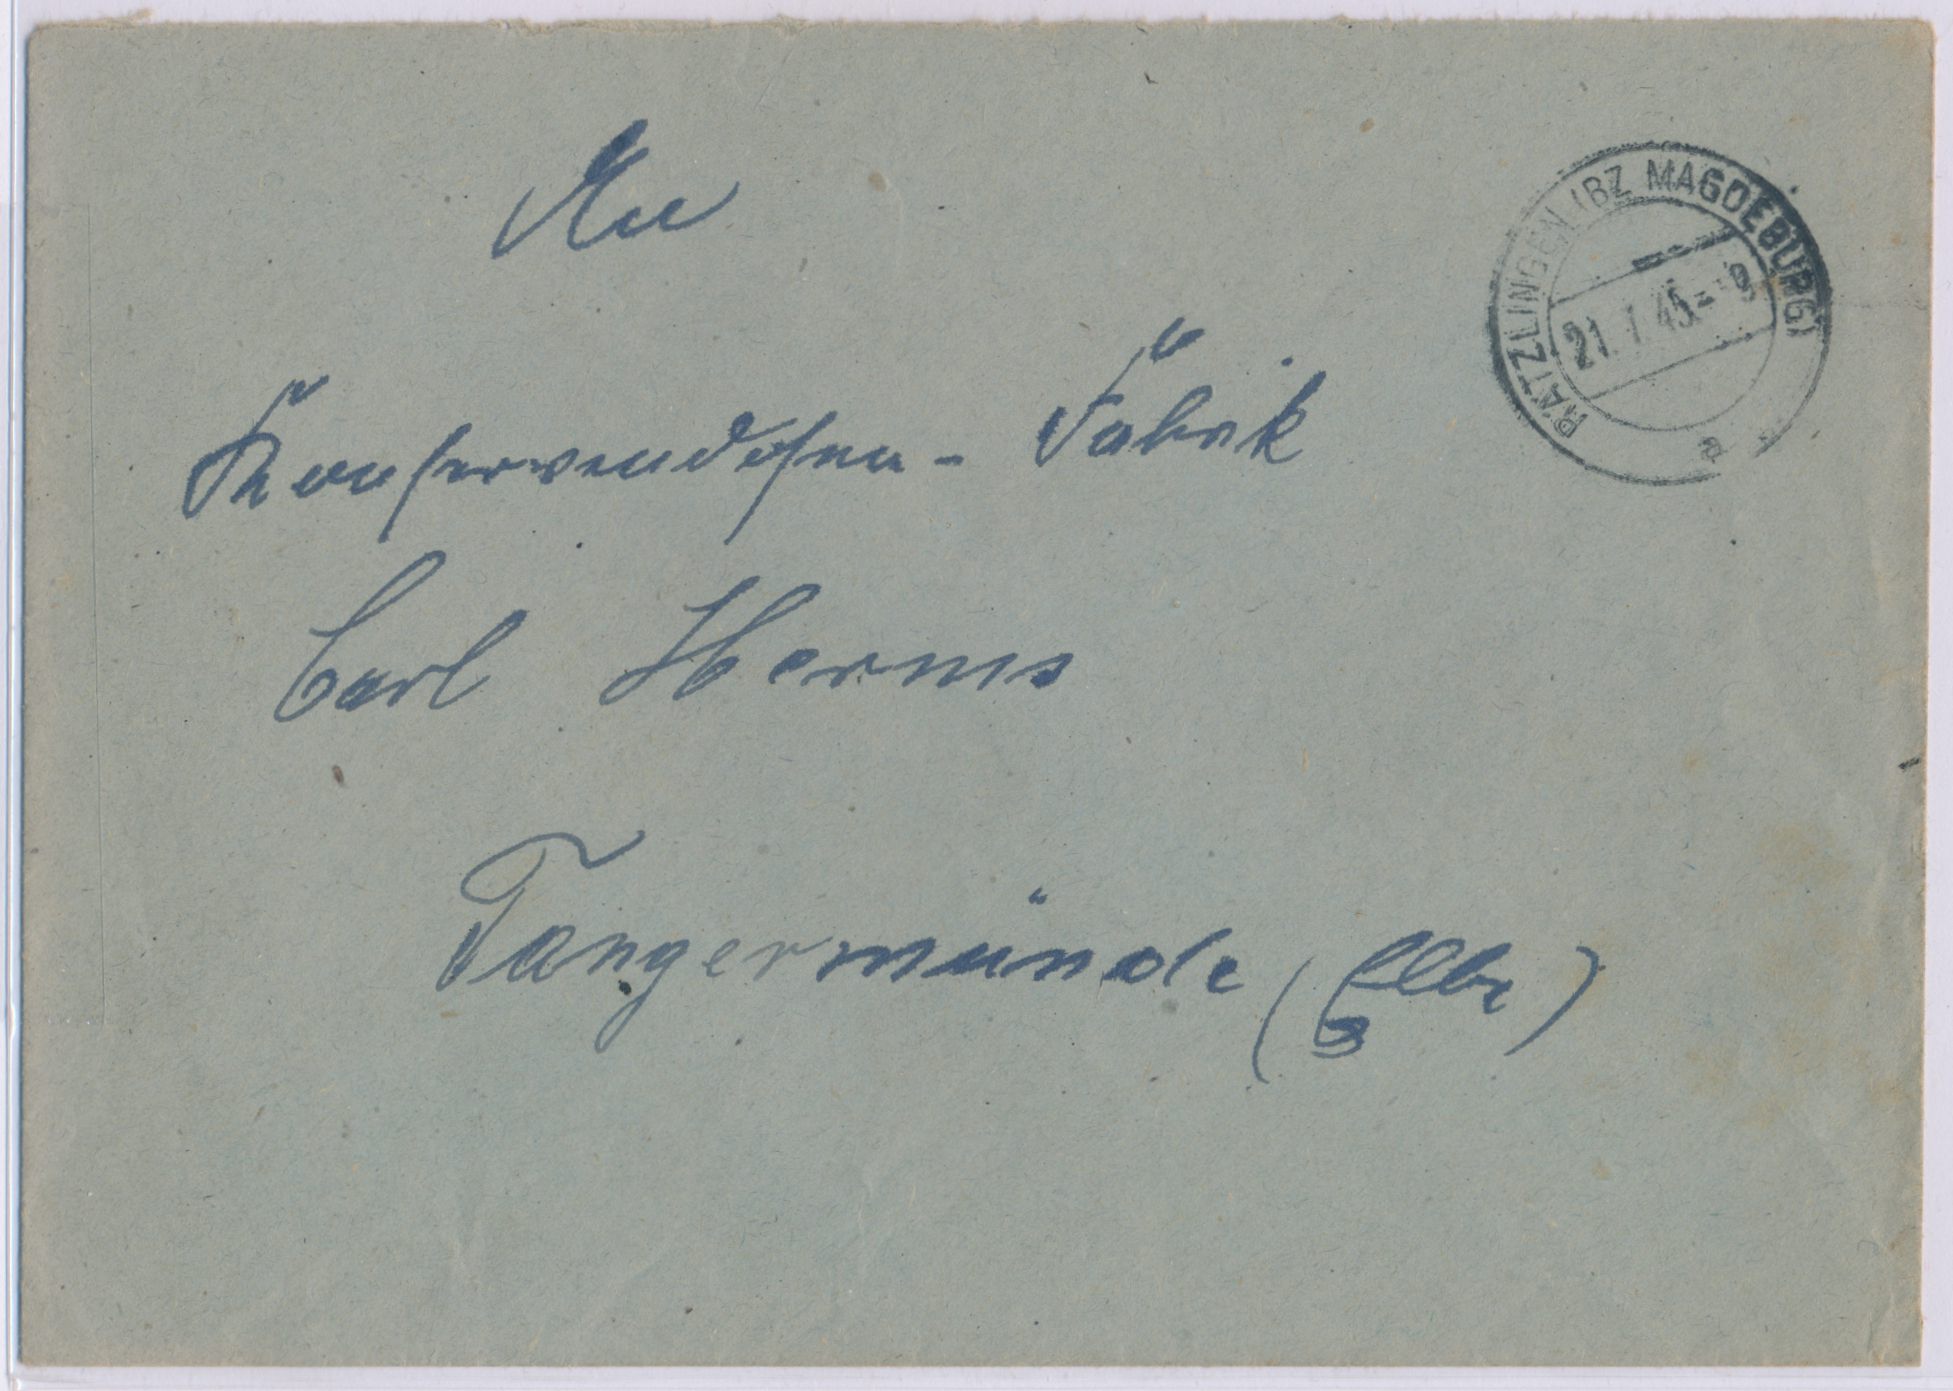 An
RÄTZLINGEN (BZ MAGDEBURG)
21. 7. 45.
a
Konservendosen - Fabrik
Carl Herms
Tangermünde (Elbe)